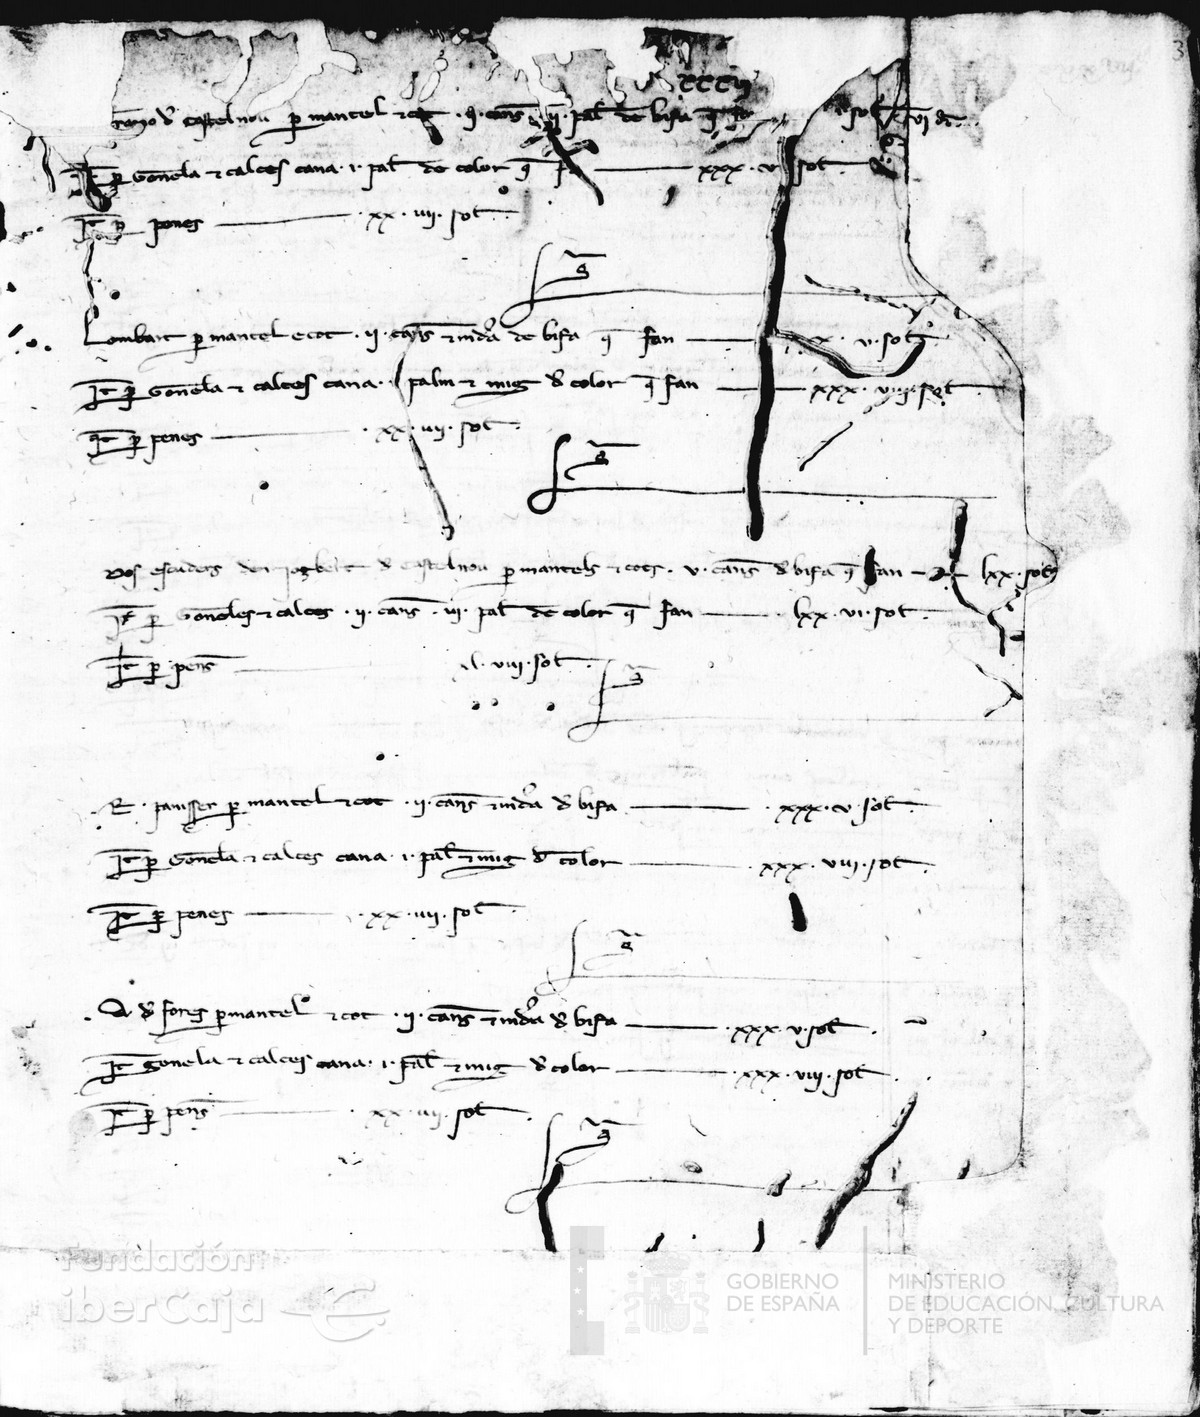 3
xxxii
de castelnou per mantel e cot .ii. canes .ii. palms de bifa que sol vi dr.
It per Gonela e calces cana .i. palm de color que fan xxx.vi sol
It per penes .xx.iiii. sol.
Lombart per mantel e cot .ii. canes e mia de bifa que fan xxx.v.sol
It per Gonela e calces cana .i. palm e mig de color que fan xxx.viii.sol
It per penes .xx.iiii. sol.
Dos escuders den de castelnou per mantels e cots .v. canes de bifa que fan lxx.sol
It per Goneles e calces .ii. canes .iii. palms de color que fan lxx.vi.sol.
It per penes xl.viii.sol.
R. panisser per mantel e cot .ii. canes e mia de bifa .xxx.v.sol.
It per Gonela e calces cana .i. palm e mig de color .xxx.viii.sol.
It per penes .xx.iiii.sol.
A de fores per mantel e cot .ii. canes e mia de bifa .xxx.v.sol.
It gonela e calces cana .i. palm e mig de color .xxx.viii.sol.
It per penes .xx.iiii.sol.
Fundación
iberCaja
GOBIERNO
DE ESPAÑA
MINISTERIO
DE EDUCACIÓN, CULTURA
Y DEPORTE